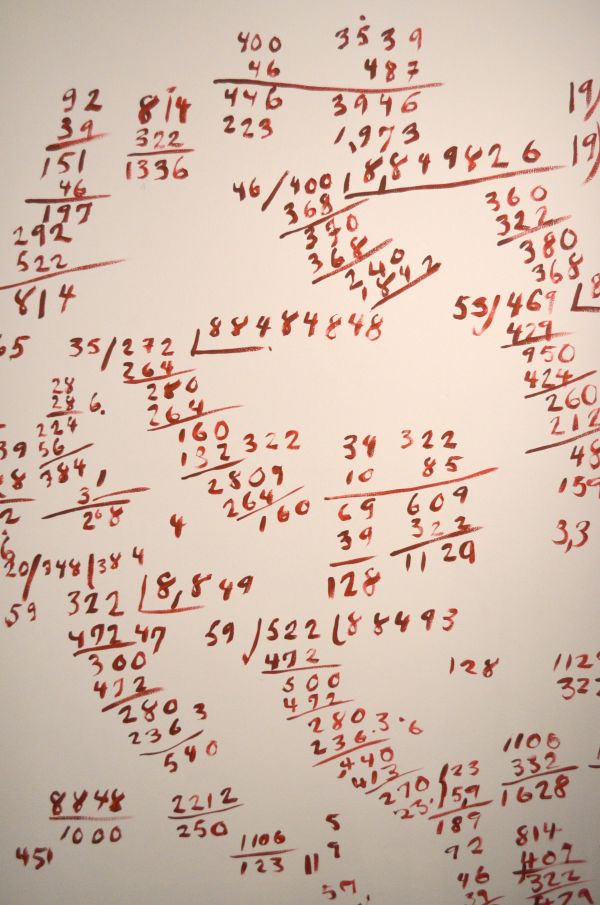 400 3539
46 487
446 3946
223 1,973
92
39
151
46
197
814
322
1336
292
522
814
46/400 1,8,849826
368
370
368
240
1842
360
322
380
368
35/272 88484848
264
280
264
160
132 322
2809
264
160
53/469
429
950
424
260
212
48
159
28
28 6.
224
56
784
31
268
4
34 322
10 85
69 609
39 323
128 1129
3,3
20/348/384
59 322 8,849
472 47
300
472
280 3
236
540
59/522 88493
472
500
472
280.3.6
236.
440
413
270
128
1106
332
1628
8848
1000
2212
250
451
1106
123 11
5
9
23
59
189
92
46
814
322